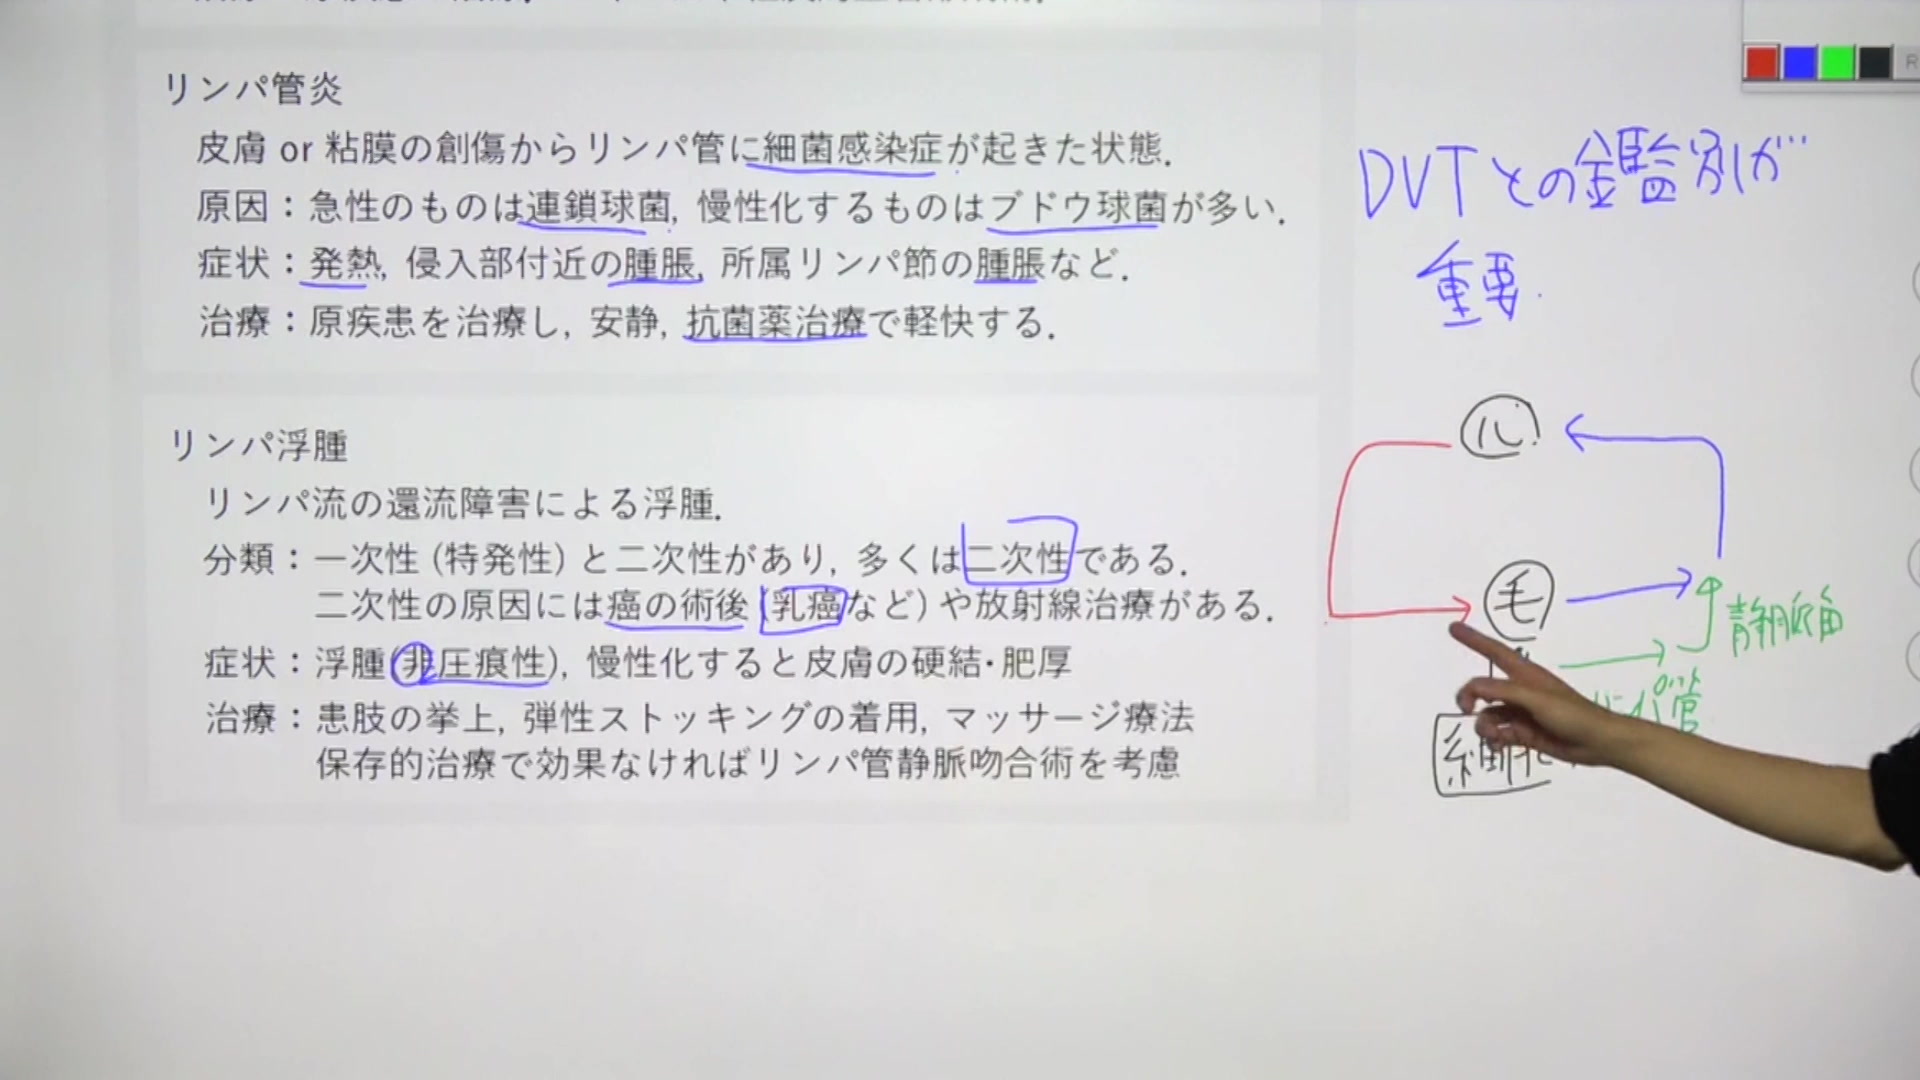 リンパ管炎
皮膚 or 粘膜の創傷からリンパ管に細菌感染症が起きた状態.
原因：急性のものは連鎖球菌, 慢性化するものはブドウ球菌が多い.
症状：発熱, 侵入部付近の腫脹, 所属リンパ節の腫脹など.
治療：原疾患を治療し, 安静, 抗菌薬治療で軽快する.
リンパ浮腫
リンパ流の還流障害による浮腫.
分類：一次性 (特発性) と二次性があり, 多くは二次性である.
二次性の原因には癌の術後 (乳癌など) や放射線治療がある.
症状：浮腫 (非圧痕性), 慢性化すると皮膚の硬結・肥厚
治療：患肢の挙上, 弾性ストッキングの着用, マッサージ療法
保存的治療で効果なければリンパ管静脈吻合術を考慮
DVTとの鑑別が
重要.
心
毛
静脈角
管
R